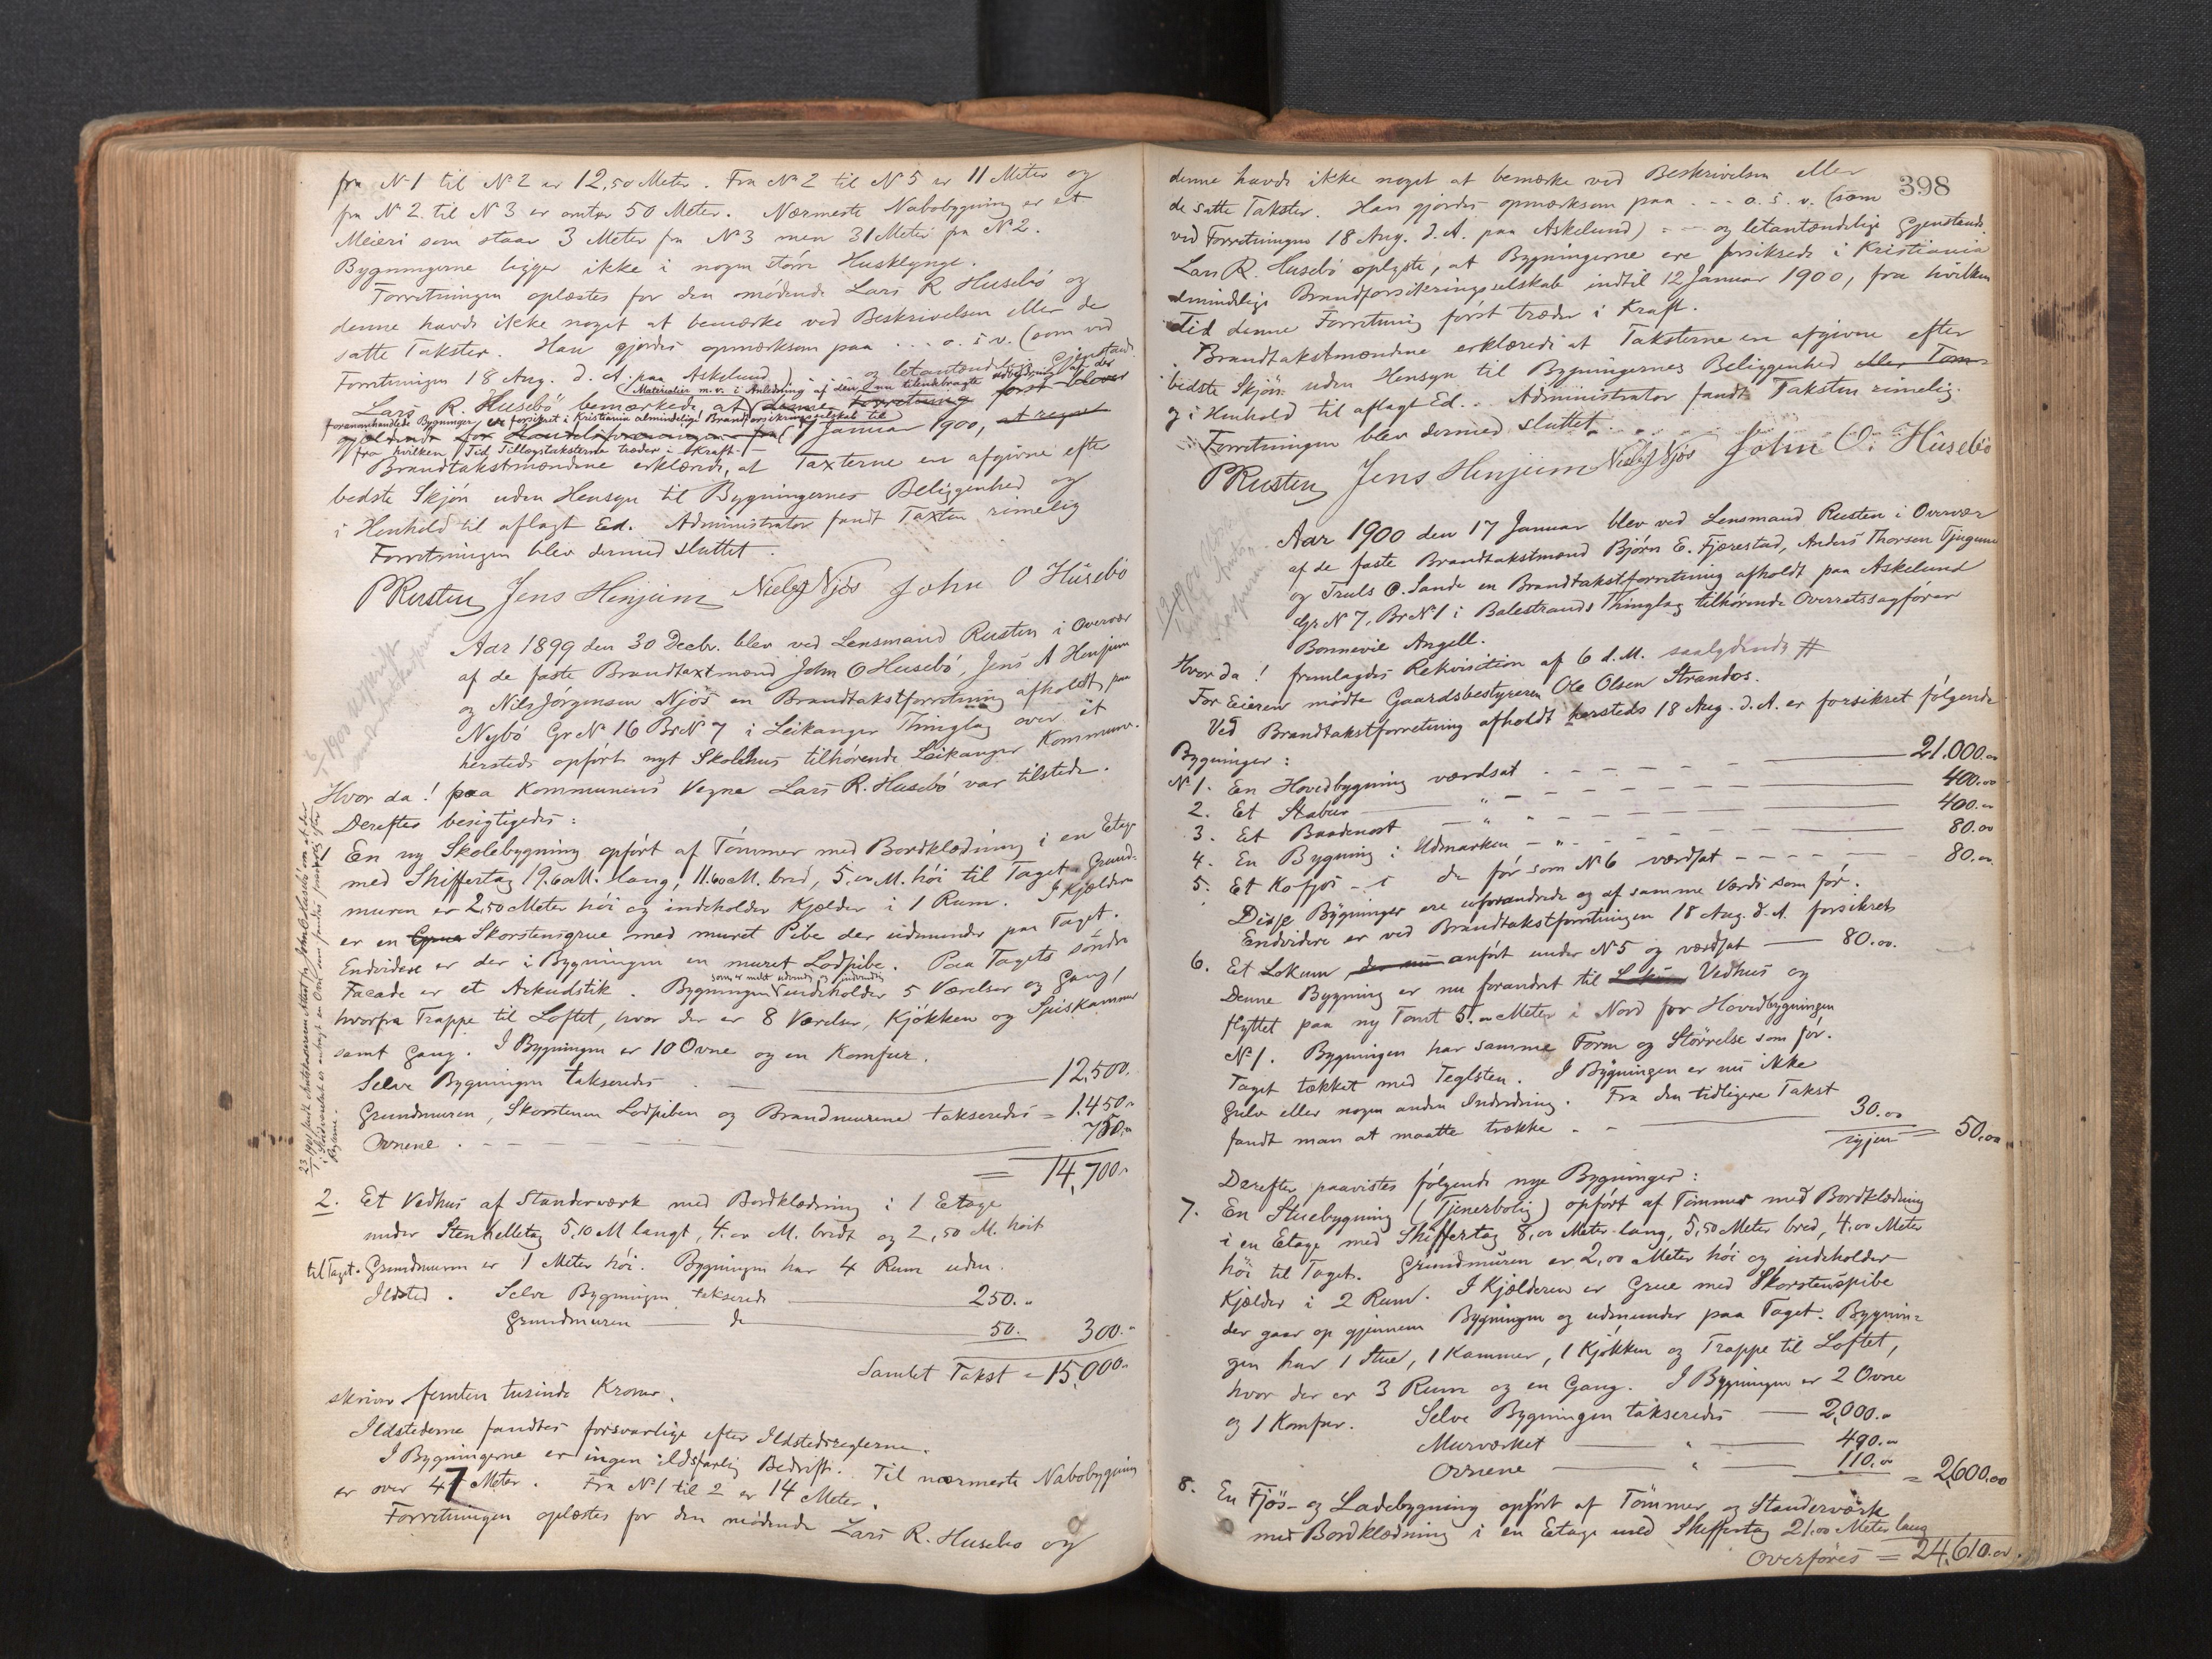 fra N 1 til N 2 er 12,50 Meter. Fra N 2 til N 5 er 11 Meter og
fra N 2 til N 3 er omtr 50 Meter. Nærmeste Nabobygning er et
Meieri som staar 3 Meter fra N 3 men 31 Meter fra N 2.
Bygningerne ligger ikke i nogen større Husklynge.
Forretningen oplæstes for den mødende Lars R Husebö og
denne havde ikke noget at bemærke ved Beskrivelsen eller de
satte Takster. Han gjordes opmærksom paa . . . o. s. v. (som ved
Forretningen 18 Aug. d. A. paa Askelund) - - og letantændelige Gjenstand.
Materialier m.v. i Anledning af den nu tilendebragte
Lars R. Husebö bemærkede, at denne Forretning først bliver
foranomhandlede Bygninger er forsikret i Kristiania almindelige Brandforsikringsselskab til
gjældende for 1 Januar 1900, at regne
fra hvilken Tid Tillægstaksterne træder i Kraft.
Brandtakstmændene erklærede, at Taxterne er afgivne efter
bedste Skjön uden Hensyn til Bygningernes Beliggenhed og
i Henhold til aflagt Ed. Administrator fandt Taxten rimelig
Forretningen blev dermed sluttet.
P Rusten Jens Hinjum Niels J Njös John O Husebö
Aar 1899 den 30 Decbr. blev ved Lensmand Rusten i Overvær
af de faste Brandtaxtmænd John O Husebö, Jens A Henjum
og Nils Jörgensen Njös en Brandtakstforretning afholdt paa
Nybö Gr N 16 Br N 7 i Leikanger Thinglag over et
hersteds opfört nyt Skolehus tilhörende Leikanger Kommune.
Hvor da! paa Kommunens Vegne Lars R. Husebö var tilstede.
Derefter besigtigedes:
1 En ny Skolebygning opfört af Tömmer med Bordklædning i en Etage
med Skiffertag 19.60 M. lang, 11.60 M. bred, 5.00 M. höi til Taget. Grund-
muren er 2,50 Meter höi og indeholder Kjælder i 1 Rum. I Kjælderen
er en Grue Skorstensgrue med muret Pibe der udmunder paa Taget.
Endvidere er der i Bygningen en muret Lodpibe. Paa Tagets söndre
som er malt udvendig og indvendig
Facade er et Arkudstik. Bygningen indeholder 5 Værelser og Gang,
hvorfra Trappe til Loftet, hvor der er 8 Værelser, Kjökken og Spiskammer
samt Gang. I Bygningen er 10 Ovne og en Komfur.
Selve Bygningen takseredes 12,500.
Grundmuren, Skorstenen Lodpiben og Brandmurene takseredes = 1,450.
Ovnene 750.
= 14,700.
2. Et Vedhus af Standerværk med Bordklædning i 1 Etage
under Stenhelletag 5,10 M langt, 4.00 M. bredt og 2,50 M. höit
til Taget. Grundmuren er 1 Meter höi. Bygningen har 4 Rum uden
Ildsted. Selve Bygningen takseredes 250.
Grundmuren do 50. 300.
Samlet Takst = 15,000.
skriver femten tusinde Kroner.
Ildstederne fandtes forsvarlige efter Ildstedsreglerne.
I Bygningerne er ingen ildsfarlig Bedrift. Til nærmeste Nabobygning
er over 47 Meter. Fra N 1 til 2 er 14 Meter.
Forretningen oplæstes for den mödende Lars R. Husebö og
398
denne havde ikke noget at bemærke ved Beskrivelsen eller
de satte Takster. Han gjordes opmærksom paa . . . o. s. v. (som
ved Forretningen 18 Aug. d. A. paa Askelund) = - og letantændelige Gjenstande
Lars R. Husebö oplyste, at Bygningerne ere forsikrede i Kristiania
almindelige Brandforsikringsselskab indtil 12 Januar 1900, fra hvilken
Tid denne Forretning först træder i Kraft.
Brandtakstmændene erklærede at Taksterne er afgivne efter
bedste Skjön uden Hensyn til Bygningernes Beliggenhed eller Tom-
og i Henhold til aflagt Ed. Administrator fandt Taksten rimelig.
Forretningen blev dermed sluttet.
P Rusten Jens Hinjum Niels J Njös John O. Husebö
Aar 1900 den 17 Januar blev ved Lensmand Rusten i Overvær
af de faste Brandtakstmænd Björn E. Fjærestad, Anders Thorsen Tjugum
og Truls O. Sande en Brandtakstforretning afholdt paa Askelund
Gr N 7, Br N 1 i Balestrands Thinglag tilhörende Overretssagförer
Bonnevie Angell.
Hvor da! fremlagdes Rekvisition af 6 d. M. saalydende #
For Eieren mödte Gaardsbestyreren Ole Olsen Strandos.
Ved Brandtakstforretning afholdt hersteds 18 Aug. d. A. er forsikret fölgende
Bygninger:
N 1. En Hovedbygning værdsat 21.000.00
2. Et Stabur " 400.00
3. Et Baadenöst " 400.00
4. En Bygning i Udmarken - " - 80.00
5. Et Kofjös der för som N 6 værdsat 80.00
Disse Bygninger ere uforandrede og af samme Værdi som för.
Endvidere er ved Brandtakstforretningen 18 Aug. d. A. forsikret
6. Et Lokum der nu anfört under N 5 og værdsat — 80.00.
Denne Bygning er nu forandret til Vedhus og
flyttet paa ny Tomt 5.00 Meter i Nord for Hovedbygningen
N 1. Bygningen har samme Form og Störrelse som för.
Taget tækket med Teglsten. I Bygningen er nu ikke
Gulv eller nogen anden Indredning. Fra den tidligere Takst
fandt man at maatte trække 30.00
igjen = 50.00
Derefter paavistes fölgende nye Bygninger:
7. En Stuebygning (Tjenerbolig) opfört af Tömmer med Bordklædning
i en Etage med Skiffertag 8,00 Meter lang, 5,50 Meter bred, 4.00 Meter
höi til Taget. Grundmuren er 2,00 Meter höi og indeholder
Kjælder i 2 Rum. I Kjælderen er Grue med Skorstenspibe
der gaar op gjennem Bygningen og udmunder paa Taget. Bygnin=
gen har 1 Stue, 1 Kammer, 1 Kjökken og Trappe til Loftet,
hvor der er 3 Rum og en Gang. I Bygningen er 2 Ovne
og 1 Komfur. Selve Bygningen takseredes — 2,000.
Murværket — " — 490.
Ovnene — " — 110.00 = 2,600.00
8. En Fjös- og Ladebygning opfört af Tömmer og Standerværk
med Bordklædning i en Etage med Skiffertag 21.00 Meter lang
Overföres = 24,610.00.